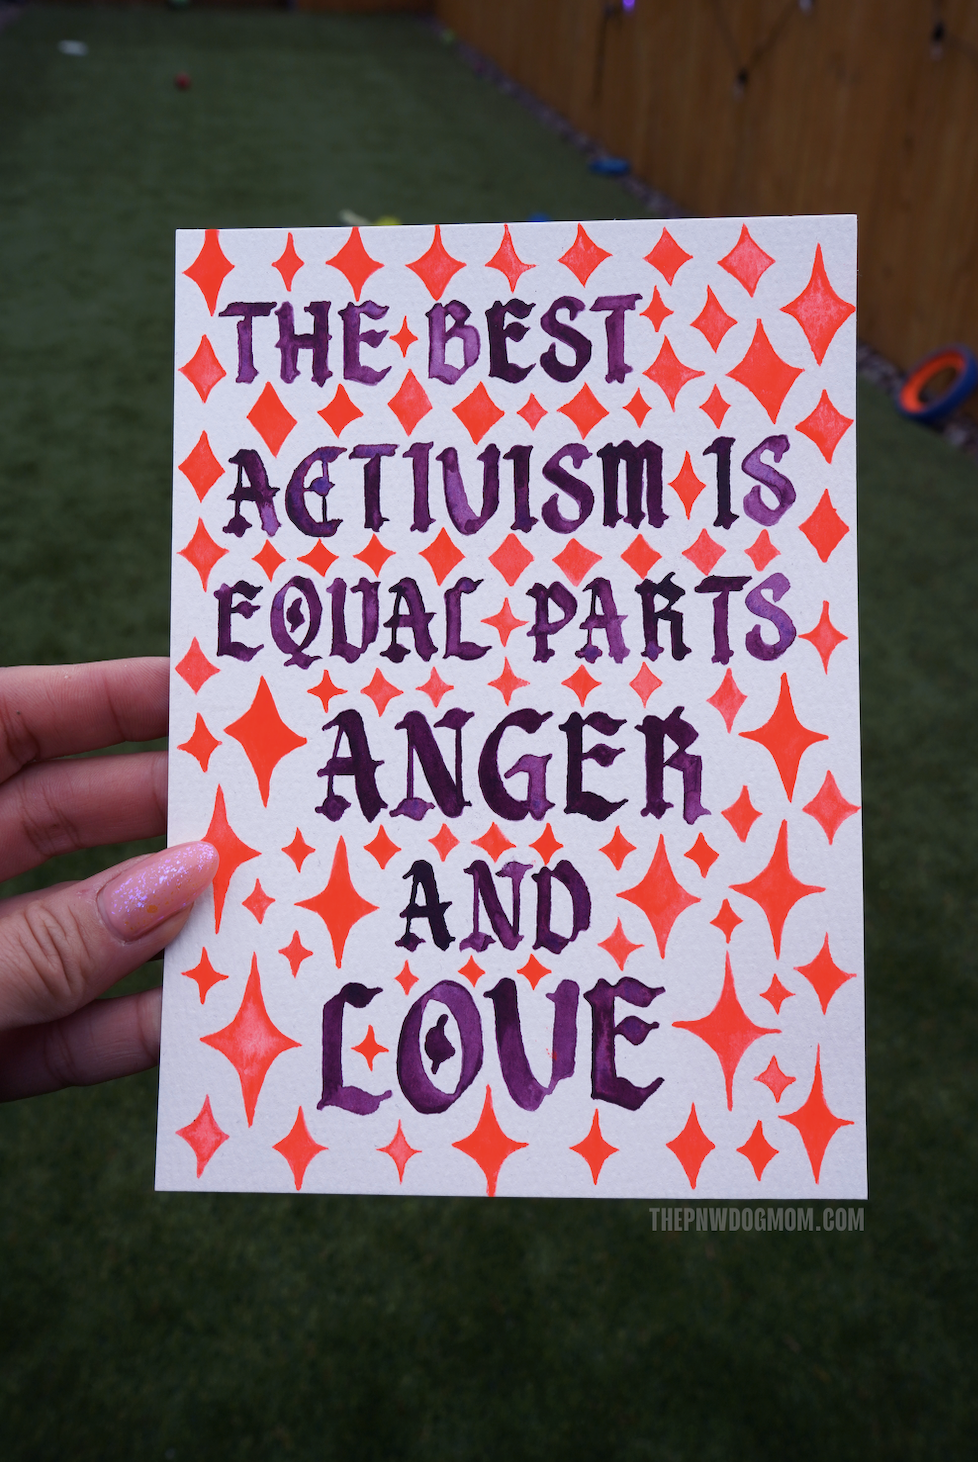 THE BEST
ACTIVISM IS
EQUAL PARTS
ANGER
AND
LOVE
THEPNWDOGMOM.COM